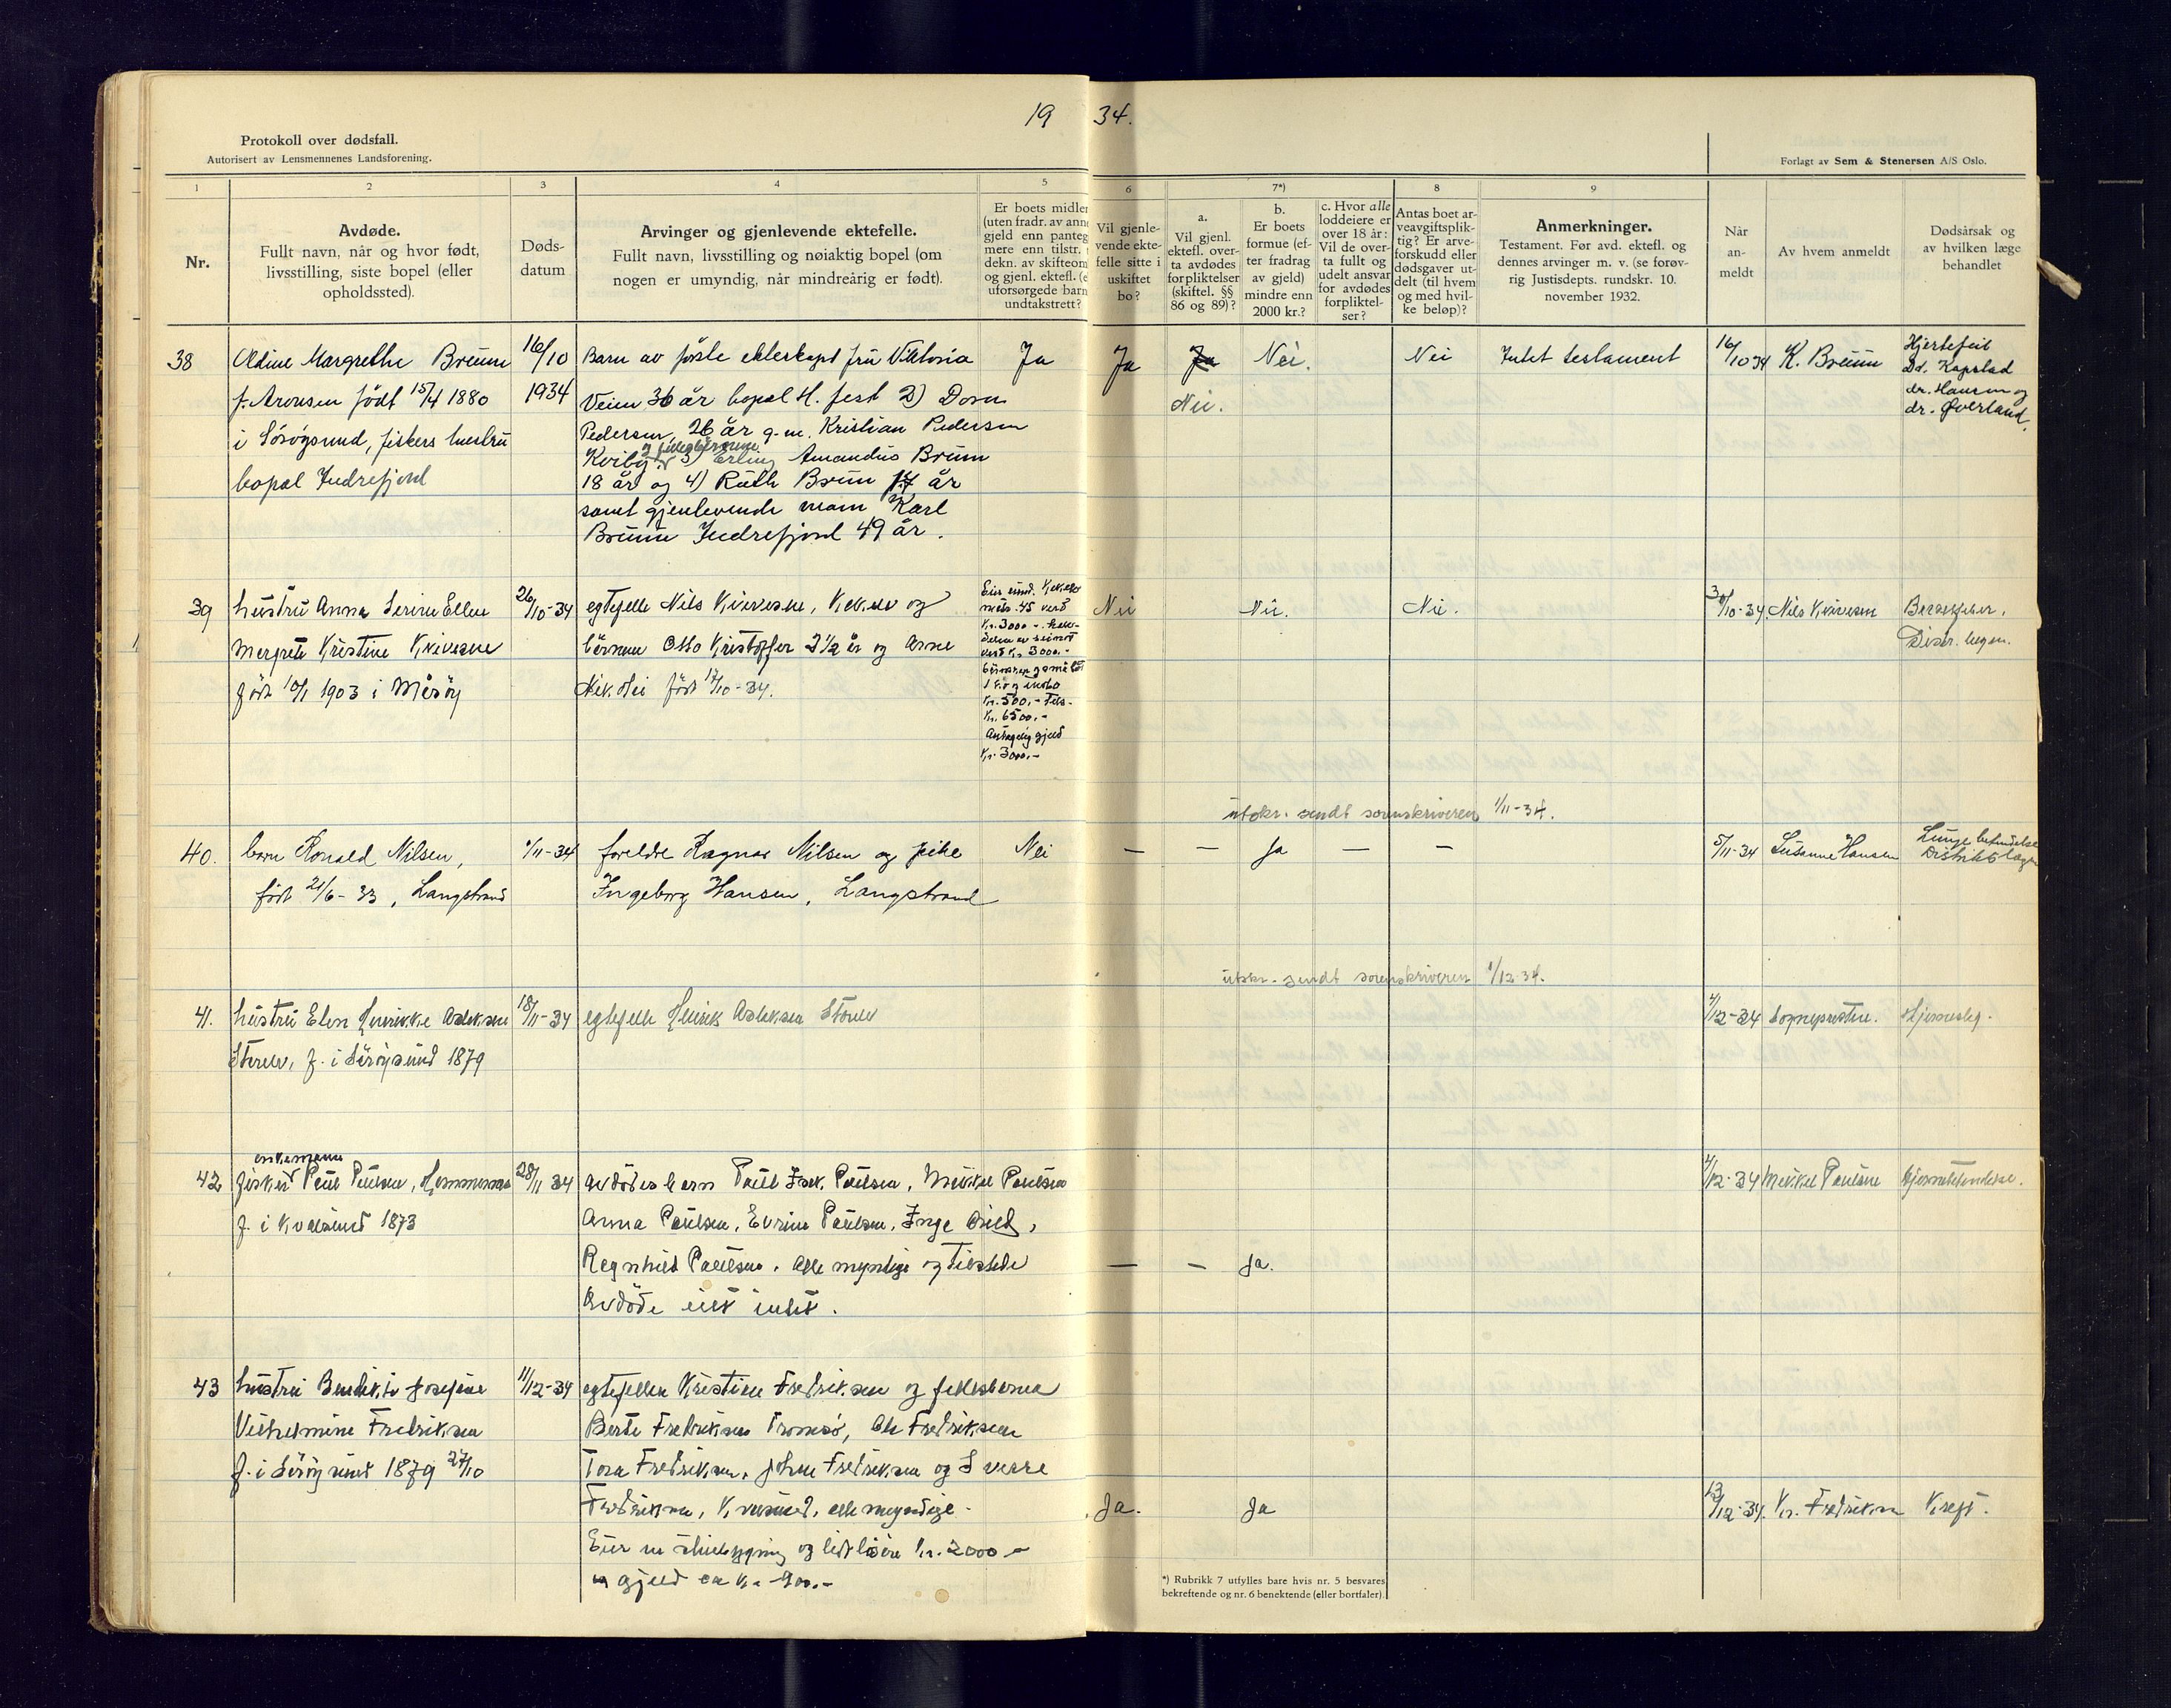 19 34.
Protokoll over dødsfall.
Autorisert av Lensmennenes Landsforening.
Forlagt av Sem & Stenersen A/S Oslo.
1 2 3 4 5 6 7*) 8 9
Nr.
Avdøde.
Fullt navn, når og hvor født,
livsstilling, siste bopel (eller
opholdssted).
Døds-
datum
Arvinger og gjenlevende ektefelle.
Fullt navn, livsstilling og nøiaktig bopel (om
nogen er umyndig, når mindreårig er født).
Er boets midler
(uten fradr. av ann
gjeld enn panteg
mere enn tilstr.
dekn. av skifteom
og gjenl. ektefl. (e
uforsørgede barn
undtakstrett?
Vil gjenle-
vende ekte-
felle sitte i
uskiftet
bo?
a.
Vil gjenl.
ektefl. over-
ta avdødes
forpliktelser
(skiftel. §§
86 og 89)?
b.
Er boets
formue (ef-
ter fradrag
av gjeld)
mindre enn
2000 kr.?
c. Hvor alle
loddeiere er
over 18 år:
Vil de over-
ta fullt og
udelt ansvar
for avdødes
forpliktel-
ser?
Antas boet ar-
veavgiftsplik-
tig? Er arve-
forskudd eller
dødsgaver ut-
delt (til hvem
og med hvil-
ke beløp)?
Anmerkninger.
Testament. Før avd. ektefl. og
dennes arvinger m. v. (se forøv-
rig Justisdepts. rundskr. 10.
november 1932.
Når
an-
meldt
Av hvem anmeldt
Dødsårsak og
av hvilken læge
behandlet
38
Oldine Margrethe Bruun
f. Aronsen född 15/4 1880
i Sörøysund, fiskers hustru
bopæl Indrefjord
16/10
1934
Barn av förste ekteskapet fru Viktoria
Veien 36 år bopæl H. fest 2)
Pedersen, 26 år g. m. Kristian Pedersen
Kviby og fellesbarnene 3) Erling Amandus Bruun
18 år og 4) Ruth Bruun 17 år
samt gjenlevende mann Karl
Bruun Indrefjord 49 år.
Ja
Ja
Ja
Nei.
Nei.
Nei
Intet testament
16/10 34
K. Bruun
Hjertefeil
Dr. Kapstad
dr. Hansen og
dr. Øverland.
39
hustru Anna Serine Ellen
Margrete Kristine
född 10/1 1903 i Måsøy
26/10-34
egtefelle Nils
börnene Otto Kristoffer 2 1/2 år og Arne
Nikolai född 17/10-34.
Kr. 3000.-
verd kr. 3000.-
Kr. 500.-
Kr. 6500.-
Antagelig gjeld
Kr. 3000.-
Nei
Nei.
Nei.
30/10-34.
Distr. legen.
utskr. sendt sorenskriveren 1/11-34.
40.
barn Ronald Nilsen,
född 21/6-33, Langstrand
1/11-34
foreldre Ragnar Nilsen og pike
Ingeborg Hansen, Langstrand
Nei
— — Ja — —
5/11-34
Susanne Hansen
Lunge betendelse
Distriktslægen
utskr. sendt sorenskriveren 1/12-34.
41.
hustru Elen Henrikke Aslaksen
f. i Sörøysund 1879
18/11-34
egtefelle Henrik Aslaksen
4/12-34
Sogneprestene.
Hjerneslag.
42
enkemann
fisker Paul Paulsen,
f. i Kvalsund 1873
28/11 34
avdödes barn Paul Fred. Paulsen, Mikkel Paulsen
Anna Paulsen, Paulsen, Inga
Ragnhild Paulsen. Alle myndige og tilstede
Avdöde eiet intet.
— — Ja.
4/12-34
Mikkel Paulsen
43
hustru Benedikte Josefine
Vilhelmine Fredriksen
f. i Sörøysund 1879 27/10
11/12-34
egtefellen Kristian Fredriksen og fellesbarna
Berte Fredriksen Tromsö, Ole Fredriksen
Tora Fredriksen, Johan Fredriksen og Sverre
Fredriksen, Kvalsund, alle myndige.
Eier en og litt lösöre kr. 2000.-
gjeld ca kr. 900.-
Ja.
Ja
13/12-34.
Kr. Fredriksen
Kreft.
*) Rubrikk 7 utfylles bare hvis nr. 5 besvares
bekreftende og nr. 6 benektende (eller bortfaler).